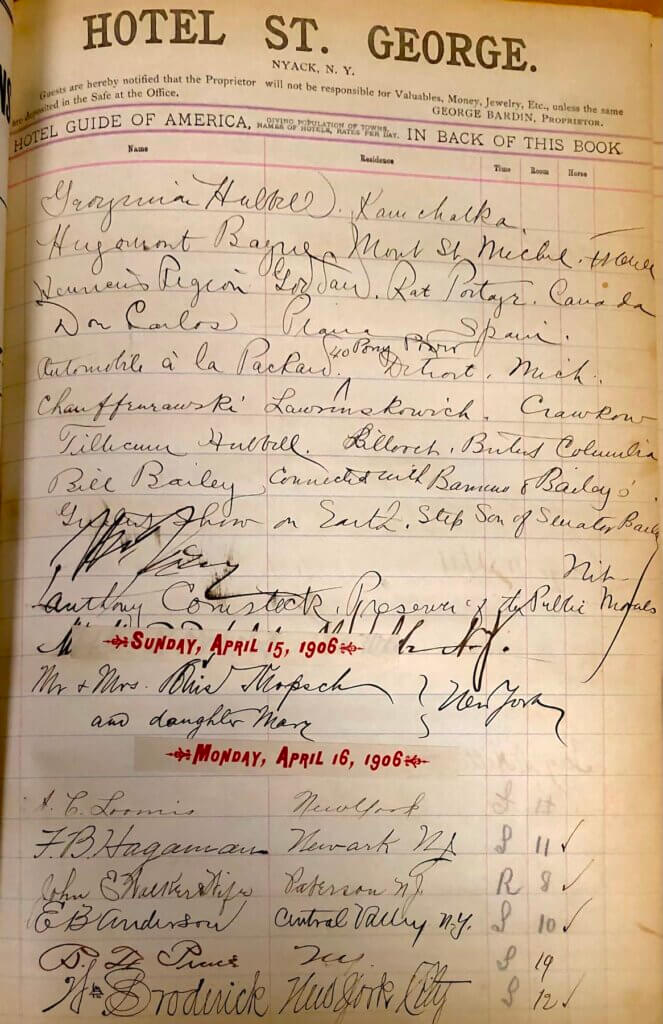 HOTEL ST. GEORGE.
NYACK, N. Y.
Guests are hereby notified that the Proprietor will not be responsible for Valuables, Money, Jewelry, Etc., unless the same
are deposited in the Safe at the Office. GEORGE BARDIN, PROPRIETOR.
HOTEL GUIDE OF AMERICA, GIVING POPULATION OF TOWNS, NAMES OF HOTELS, RATES PER DAY. IN BACK OF THIS BOOK
Name Residence Time Room Horse
Hubbell. Kamchatka.
Hugomont Bayne, Mont St. Michel.
Pigeon Rat Portage. Canada
Don Carlos Spain.
40 Pony Power
Automobile à la Packard. Detroit. Mich.
Chauffeurawski Lawrinskowich. Crawkow
Tillicum Hubbell. British Columbia
Bill Bailey Connected with Barnum & Bailey's
Greatest Show on Earth. Step Son of Senator Bailey
Anthony Comstock. Preserver of the Public Morals
SUNDAY, APRIL 15, 1906
Mr & Mrs. New York
and daughter Mary
MONDAY, APRIL 16, 1906
A. C. Loomis New York
F. B. Hagaman Newark NJ S 11 ✓
John E Walker & Wife Paterson NJ. R 8 ✓
E B Anderson Central Valley N.Y. S 10 ✓
S 19
Wm Broderick New York City S 12 ✓